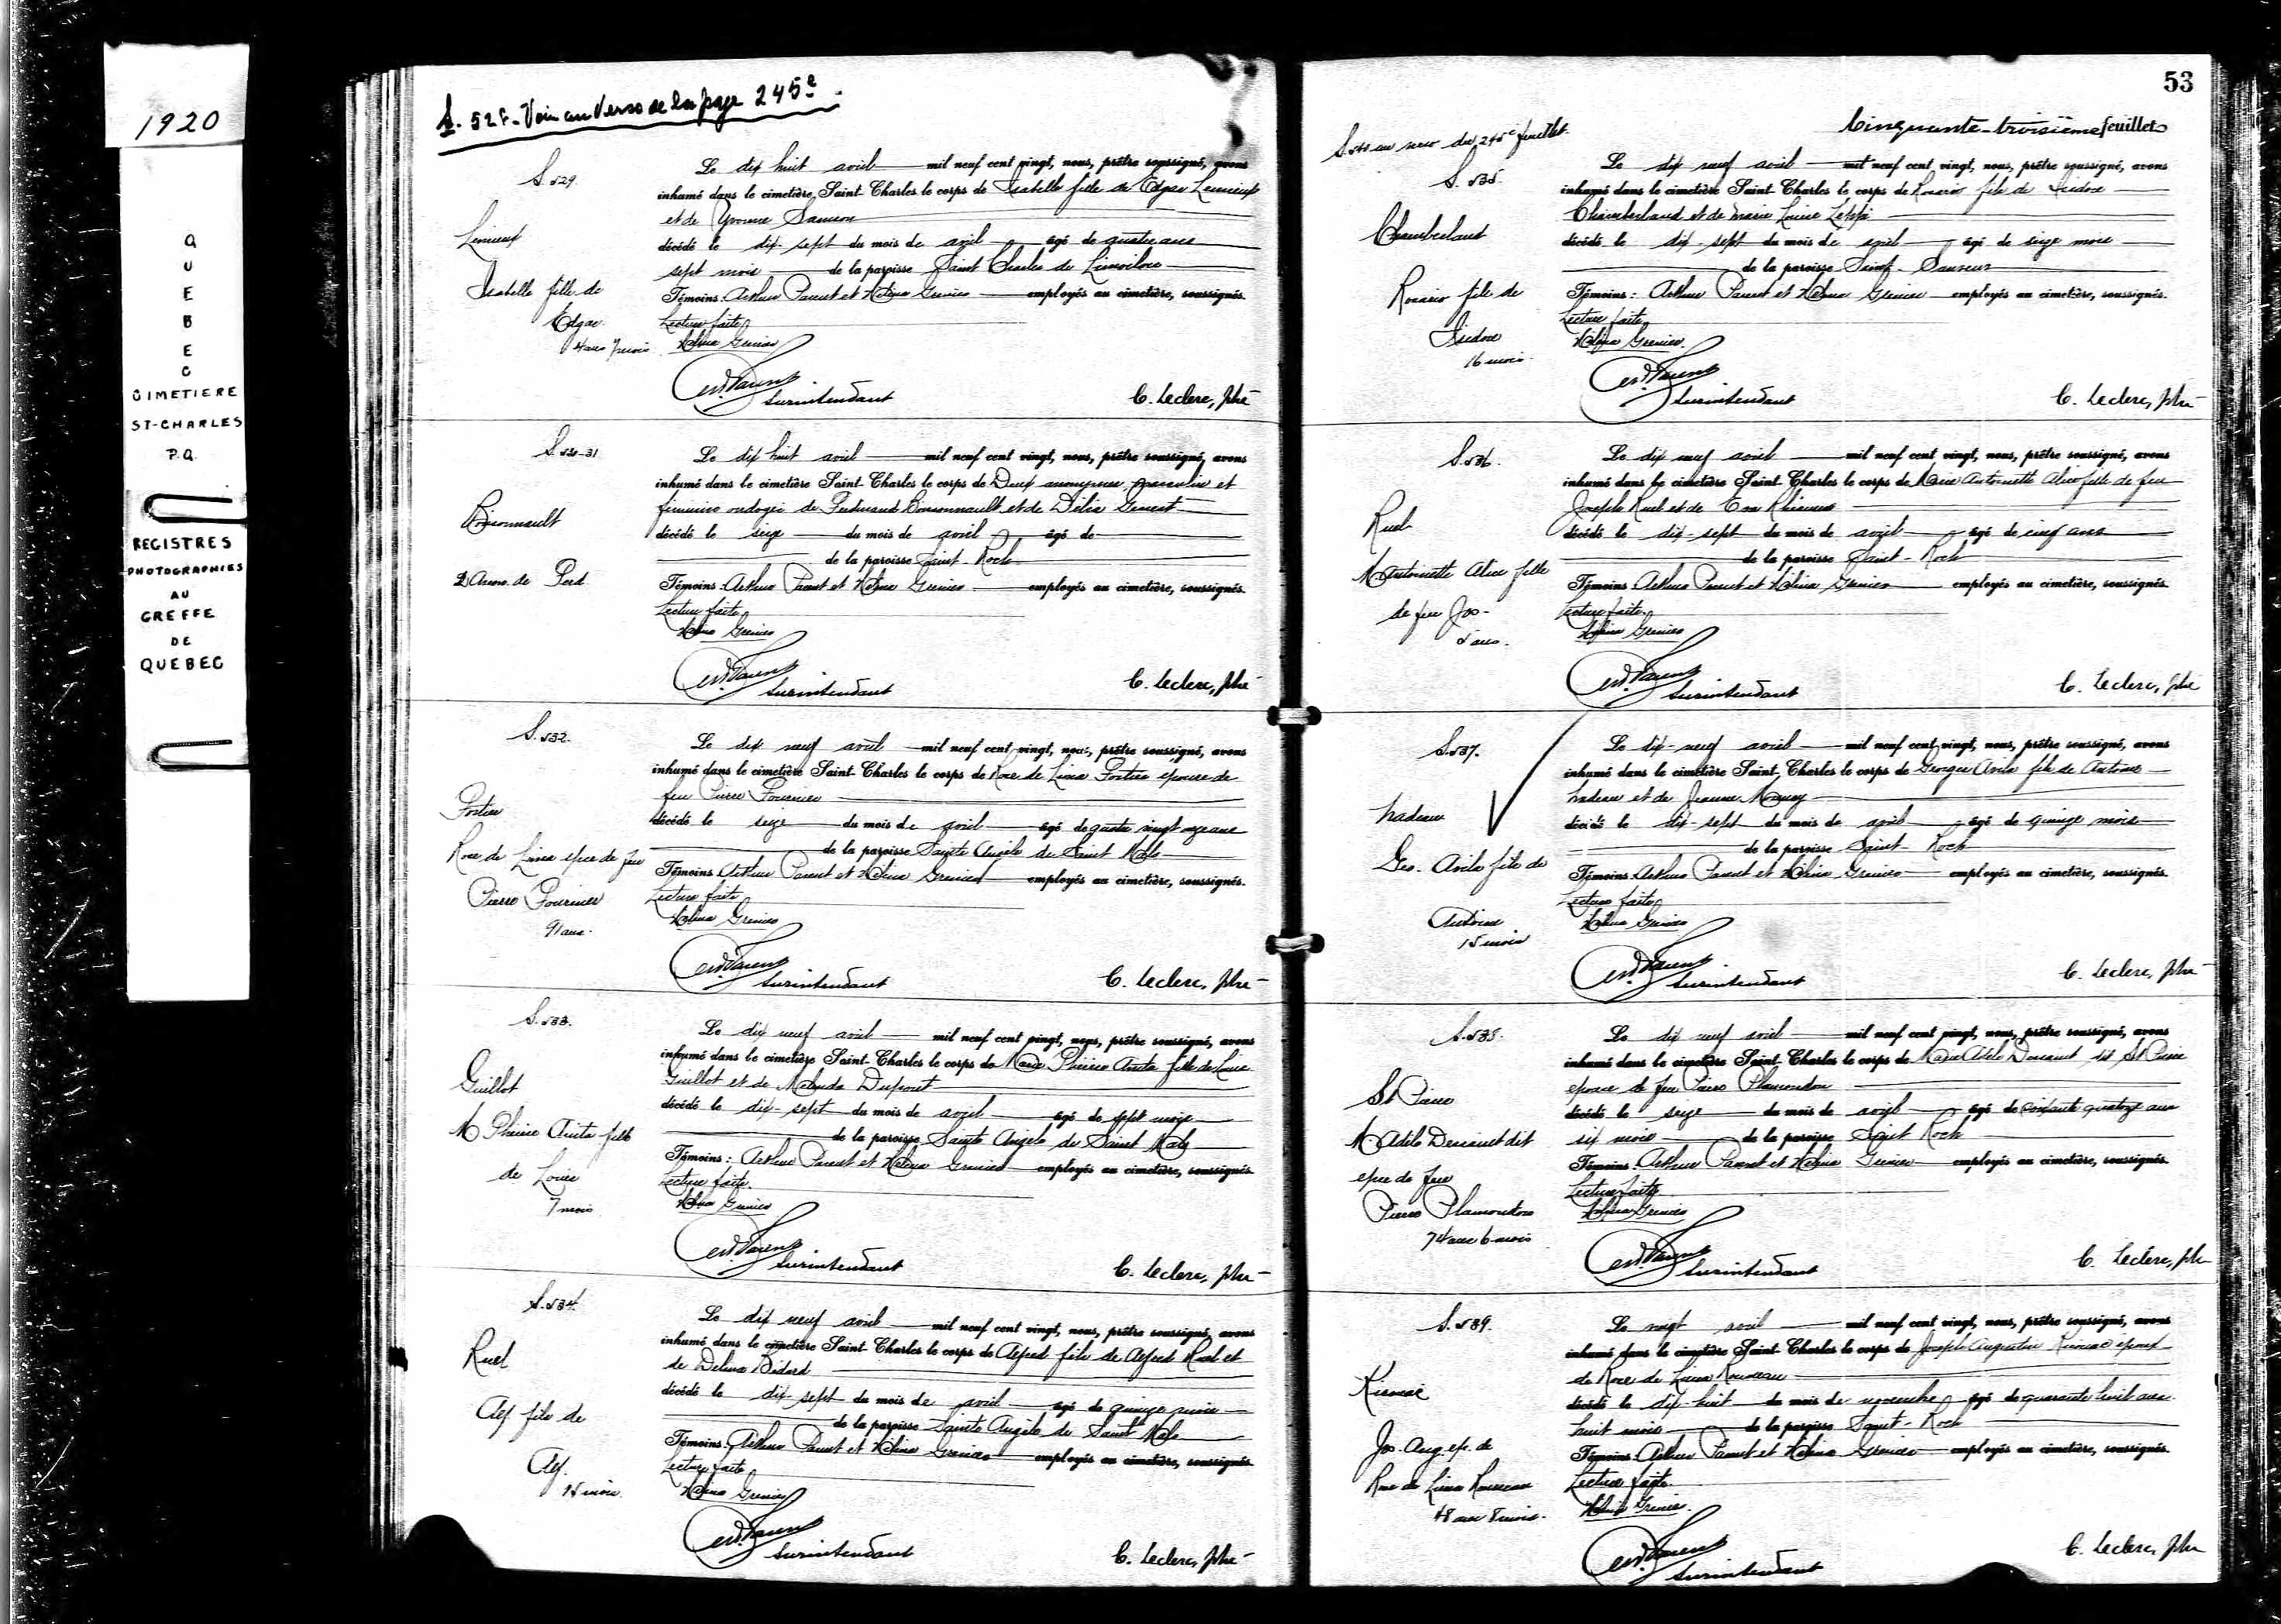 1920
QUEBEC
CIMETIERE
ST-CHARLES
P.Q.
REGISTRES
PHOTOGRAPHIES
AU
GREFFE
DE
QUEBEC
Voir au verso de la page 245e
S. 529.
Lemieux
Isabelle fille de
Edgar
4 ans 7 mois
Le dix huit avril mil neuf cent vingt, nous, prêtre soussigné, avons
inhumé dans le cimetière Saint-Charles le corps de Isabelle fille de Edgar Lemieux
et de Yvonne Samson
décédé le dix-sept du mois de avril âgé de quatre ans
sept mois de la paroisse Saint Charles de Limoilou
Témoins: Arthur Parent et Grenier employés au cimetière, soussignés.
Lecture faite
Grenier
Parent
Surintendant
C. Leclerc, ptre
S. 530-31
2 Anon. de Ferd.
Le dix huit avril mil neuf cent vingt, nous, prêtre soussigné, avons
inhumé dans le cimetière Saint-Charles le corps de Deux anonymes, masculin et
féminin ondoyés de Ferdinand et de Délia Genest
décédé le seize du mois de avril âgé de
de la paroisse Saint-Roch
Témoins: Arthur Parent et Grenier employés au cimetière, soussignés.
Lecture faite
Grenier
Parent
Surintendant
C. Leclerc, ptre
S. 532.
Fortier
Rose de Lima epse de feu
Pierre Fournier
91 ans.
Le dix neuf avril mil neuf cent vingt, nous, prêtre soussigné, avons
inhumé dans le cimetière Saint-Charles le corps de Rose de Lima Fortier épouse de
feu Pierre Fournier
décédé le seize du mois de avril âgé de quatre vingt onze ans
de la paroisse Sainte Angèle de Saint Malo
Témoins: Arthur Parent et Grenier employés au cimetière, soussignés.
Lecture faite
Grenier
Parent
Surintendant
C. Leclerc, ptre
S. 533.
Guillot
M Anita fille
de Louis
7 mois
Le dix neuf avril mil neuf cent vingt, nous, prêtre soussigné, avons
inhumé dans le cimetière Saint-Charles le corps de Marie Anita fille de Louis
Guillot et de Dupont
décédé le dix-sept du mois de avril âgé de sept mois
de la paroisse Sainte Angèle de Saint Malo
Témoins: Arthur Parent et Grenier employés au cimetière, soussignés.
Lecture faite.
Grenier
Parent
Surintendant
C. Leclerc, ptre
S. 534.
Ruel
Alf fils de
Alf.
15 mois.
Le dix neuf avril mil neuf cent vingt, nous, prêtre soussigné, avons
inhumé dans le cimetière Saint-Charles le corps de Alfred fils de Alfred Ruel et
de Delima Bédard
décédé le dix-sept du mois de avril âgé de quinze mois
de la paroisse Sainte Angèle de Saint Malo
Témoins: Arthur Parent et Grenier employés au cimetière, soussignés.
Lecture faite
Grenier
Parent
Surintendant
C. Leclerc, ptre
53
Cinquante-troisième feuillet
au verso du 245e feuillet.
S. 535.
Chamberland
Rosario fils de
Isidore
16 mois
Le dix neuf avril mil neuf cent vingt, nous, prêtre soussigné, avons
inhumé dans le cimetière Saint-Charles le corps de Rosario fils de Isidore
Chamberland et de Marie Louise
décédé le dix-sept du mois de avril âgé de seize mois
de la paroisse Saint-Sauveur
Témoins: Arthur Parent et Grenier employés au cimetière, soussignés.
Lecture faite
Grenier.
Parent
Surintendant
C. Leclerc, ptre
S. 536.
Ruel
M Antoinette Alice fille
de feu Jos-
5 ans.
Le dix neuf avril mil neuf cent vingt, nous, prêtre soussigné, avons
inhumé dans le cimetière Saint-Charles le corps de Marie Antoinette Alice fille de feu
Joseph Ruel et de
décédé le dix-sept du mois de avril âgé de cinq ans
de la paroisse Saint-Roch
Témoins: Arthur Parent et Grenier employés au cimetière, soussignés.
Lecture faite
Grenier
Parent
Surintendant
C. Leclerc, ptre
S. 537.
Nadeau
Geo. Avila fils de
Antoine
15 mois
Le dix-neuf avril mil neuf cent vingt, nous, prêtre soussigné, avons
inhumé dans le cimetière Saint-Charles le corps de Georges Avila fils de Antoine
Nadeau et de Jeanne
décédé le dix-sept du mois de avril âgé de quinze mois
de la paroisse Saint-Roch
Témoins: Arthur Parent et Grenier employés au cimetière, soussignés.
Lecture faite
Grenier
Parent
Surintendant
C. Leclerc, ptre
S. 538.
St Pierre
M Adèle dit
epse de feu
Pierre Plamondon
74 ans 6 mois
Le dix neuf avril mil neuf cent vingt, nous, prêtre soussigné, avons
inhumé dans le cimetière Saint-Charles le corps de Marie Adèle dit St Pierre
épouse de feu Pierre Plamondon
décédé le seize du mois de avril âgé de soixante quatorze ans
six mois de la paroisse Saint Roch
Témoins: Arthur Parent et Grenier employés au cimetière, soussignés.
Lecture faite
Grenier
Parent
Surintendant
C. Leclerc, ptre
S. 539.
Jos. Aug. ep. de
Rose de Lima Rousseau
48 ans 8 mois.
Le vingt avril mil neuf cent vingt, nous, prêtre soussigné, avons
inhumé dans le cimetière Saint-Charles le corps de Joseph Augustin époux
de Rose de Lima Rousseau
décédé le dix-huit du mois de novembre âgé de quarante huit ans
huit mois de la paroisse Saint-Roch
Témoins: Arthur Parent et Grenier employés au cimetière, soussignés.
Lecture faite.
Grenier.
Parent
Surintendant
C. Leclerc, ptre